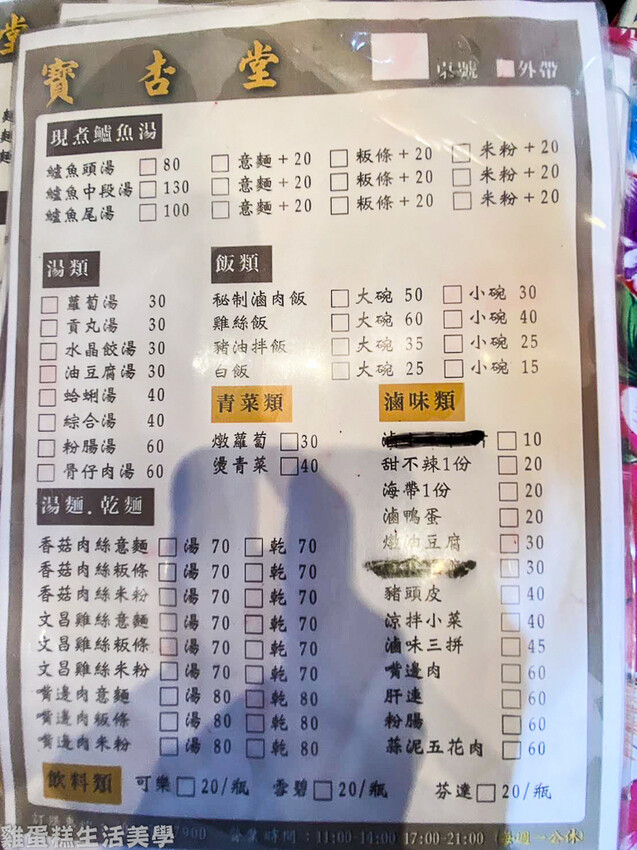 寶杏堂 桌號 外帶
現煮鱸魚湯
鱸魚頭湯 □ 80 □ 意麵+20 □ 粄條+20 □ 米粉+20
鱸魚中段湯 □ 130 □ 意麵+20 □ 粄條+20 □ 米粉+20
鱸魚尾湯 □ 100 □ 意麵+20 □ 粄條+20 □ 米粉+20
湯類
□ 蘿蔔湯 30
□ 貢丸湯 30
□ 水晶餃湯 30
□ 油豆腐湯 30
□ 蛤蜊湯 40
□ 綜合湯 40
□ 粉腸湯 60
□ 骨仔肉湯 60
飯類
秘制滷肉飯 □ 大碗 50 □ 小碗 30
雞絲飯 □ 大碗 60 □ 小碗 40
豬油拌飯 □ 大碗 35 □ 小碗 25
白飯 □ 大碗 25 □ 小碗 15
青菜類
燉蘿蔔 □ 30
燙青菜 □ 40
滷味類
□ 10
甜不辣1份 □ 20
海帶1份 □ 20
滷鴨蛋 □ 20
燉油豆腐 □ 30
□ 30
豬頭皮 □ 40
涼拌小菜 □ 40
滷味三拼 □ 45
嘴邊肉 □ 60
肝連 □ 60
粉腸 □ 60
蒜泥五花肉 □ 60
湯麵.乾麵
香菇肉絲意麵 □ 湯 70 □ 乾 70
香菇肉絲粄條 □ 湯 70 □ 乾 70
香菇肉絲米粉 □ 湯 70 □ 乾 70
文昌雞絲意麵 □ 湯 70 □ 乾 70
文昌雞絲粄條 □ 湯 70 □ 乾 70
文昌雞絲米粉 □ 湯 70 □ 乾 70
嘴邊肉意麵 □ 湯 80 □ 乾 80
嘴邊肉粄條 □ 湯 80 □ 乾 80
嘴邊肉米粉 □ 湯 80 □ 乾 80
飲料類 可樂 □ 20/瓶 雪碧 □ 20/瓶 芬達 □ 20/瓶
7900 營業時間:11:00-14:00 17:00-21:00 (每週一公休)
雞蛋糕生活美學